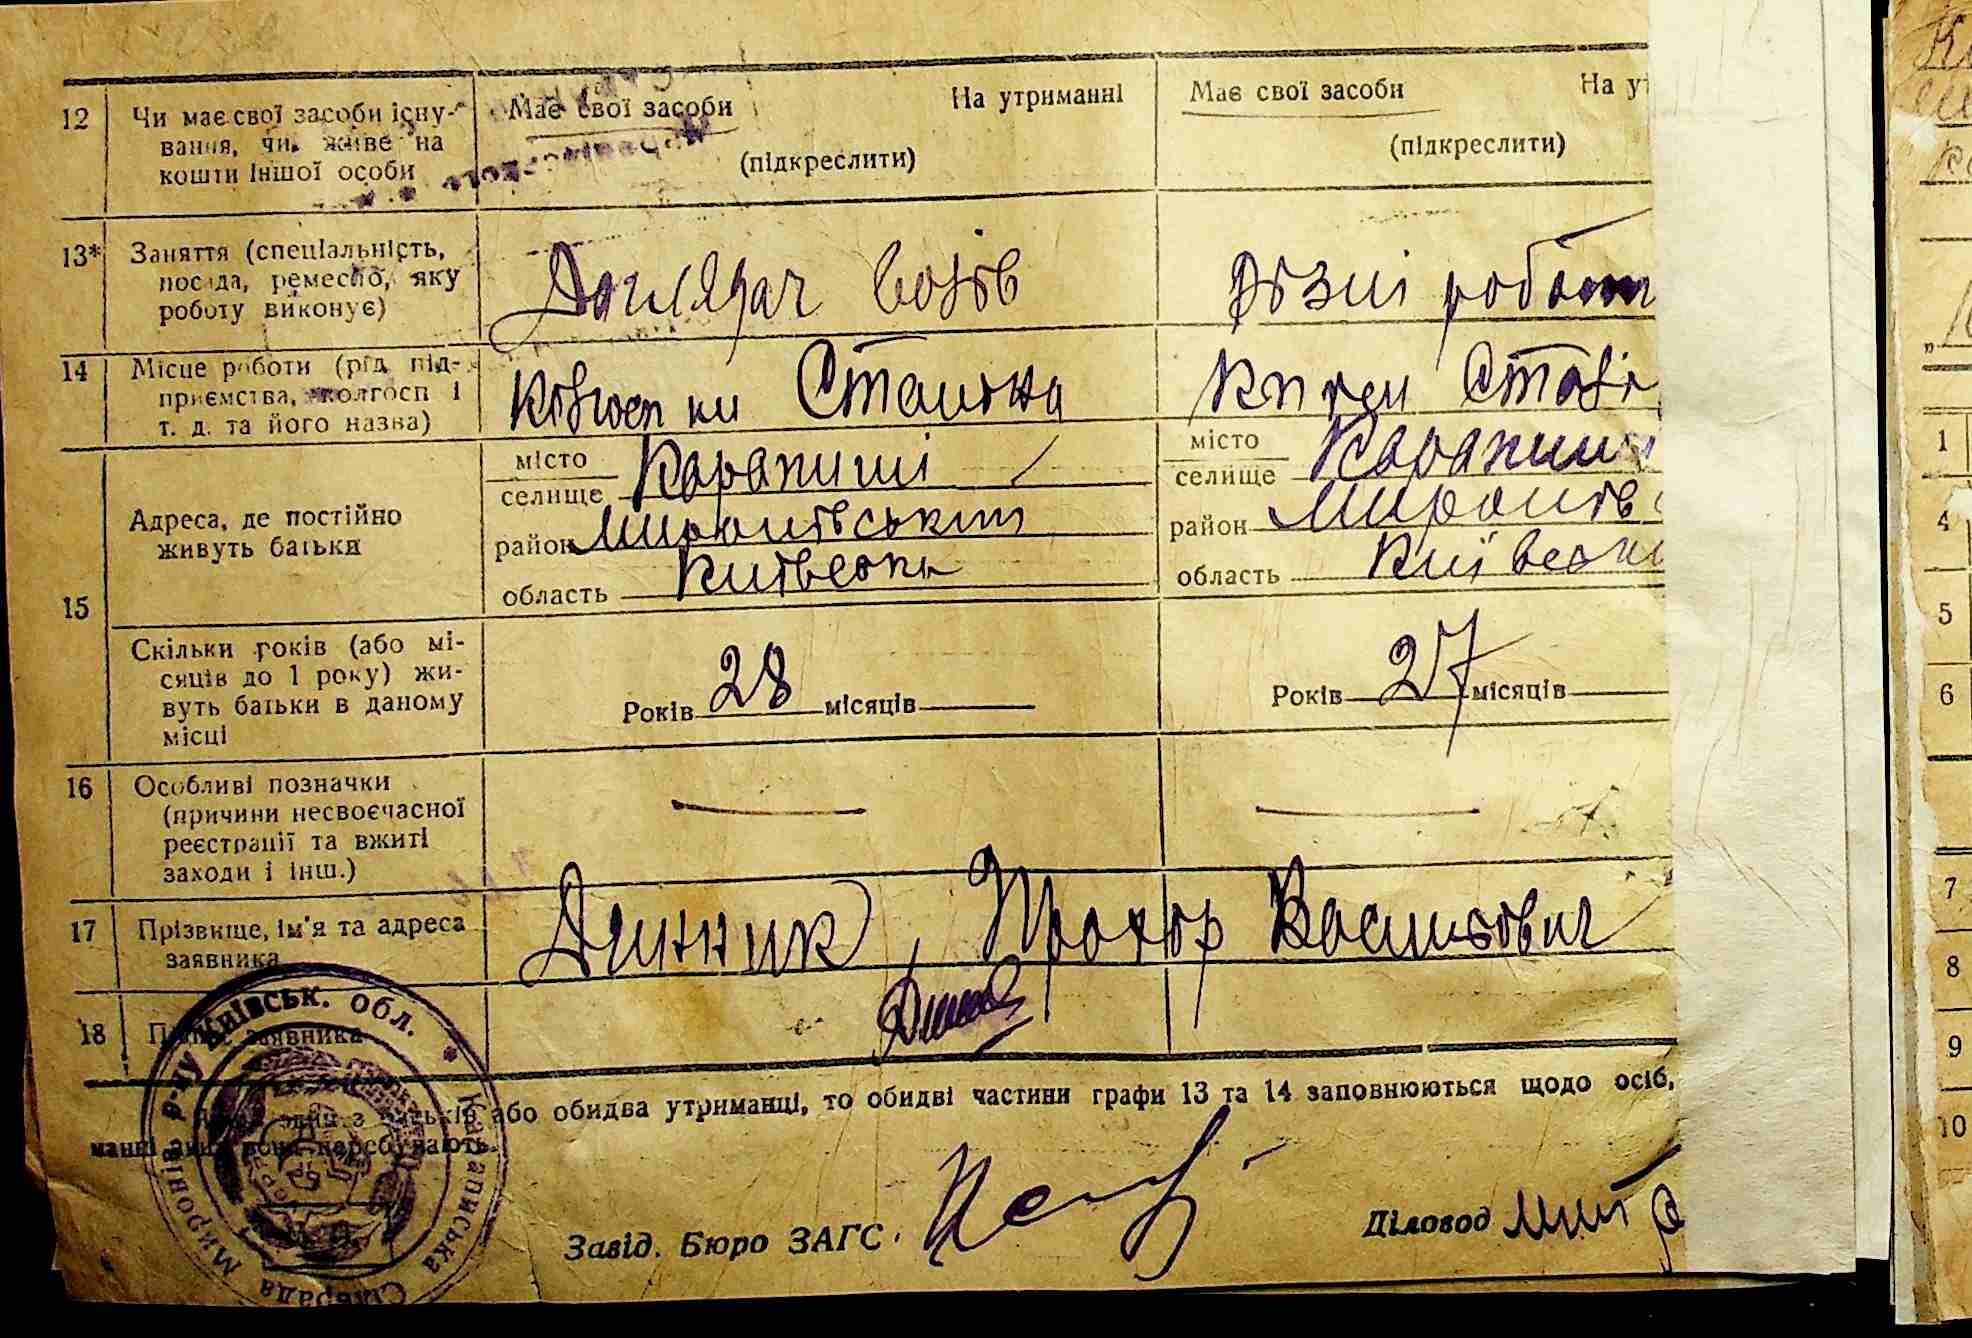 12 Чи має свої засоби існу-
вання, чи живе на
кошти іншої особи
Має свої засоби На утриманні
(підкреслити)
Має свої засоби На ут
(підкреслити)
13* Заняття (спеціальність,
посада, ремесло, яку
роботу виконує)
Доглядач возів
Різні робот
14 Місце роботи (рід під-
приємства, колгосп і
т. д. та його назва)
Колгосп Сталіна
15 Адреса, де постійно
живуть батьки
місто
селище Карапиші
район Миронівський
область Київськ
місто
селище Карапиш
район Миронівс
область Київськ
Скільки років (або мі-
сяців до 1 року) жи-
вуть батьки в даному
місці
Років 28 місяців
Років 27 місяців
16 Особливі позначки
(причини несвоєчасної
реєстрації та вжиті
заходи і інш.)
17 Прізвище, ім'я та адреса
заявника
Динник, Прохор Васильович
18 Підпис заявника
або обидва утриманці, то обидві частини графи 13 та 14 заповнюються щодо осіб,
манні яких вони перебувають.
Завід. Бюро ЗАГС
Діловод
Караписька Сільрада Миронів р-ну Київськ. обл.
1
4
5
6
7
8
9
10